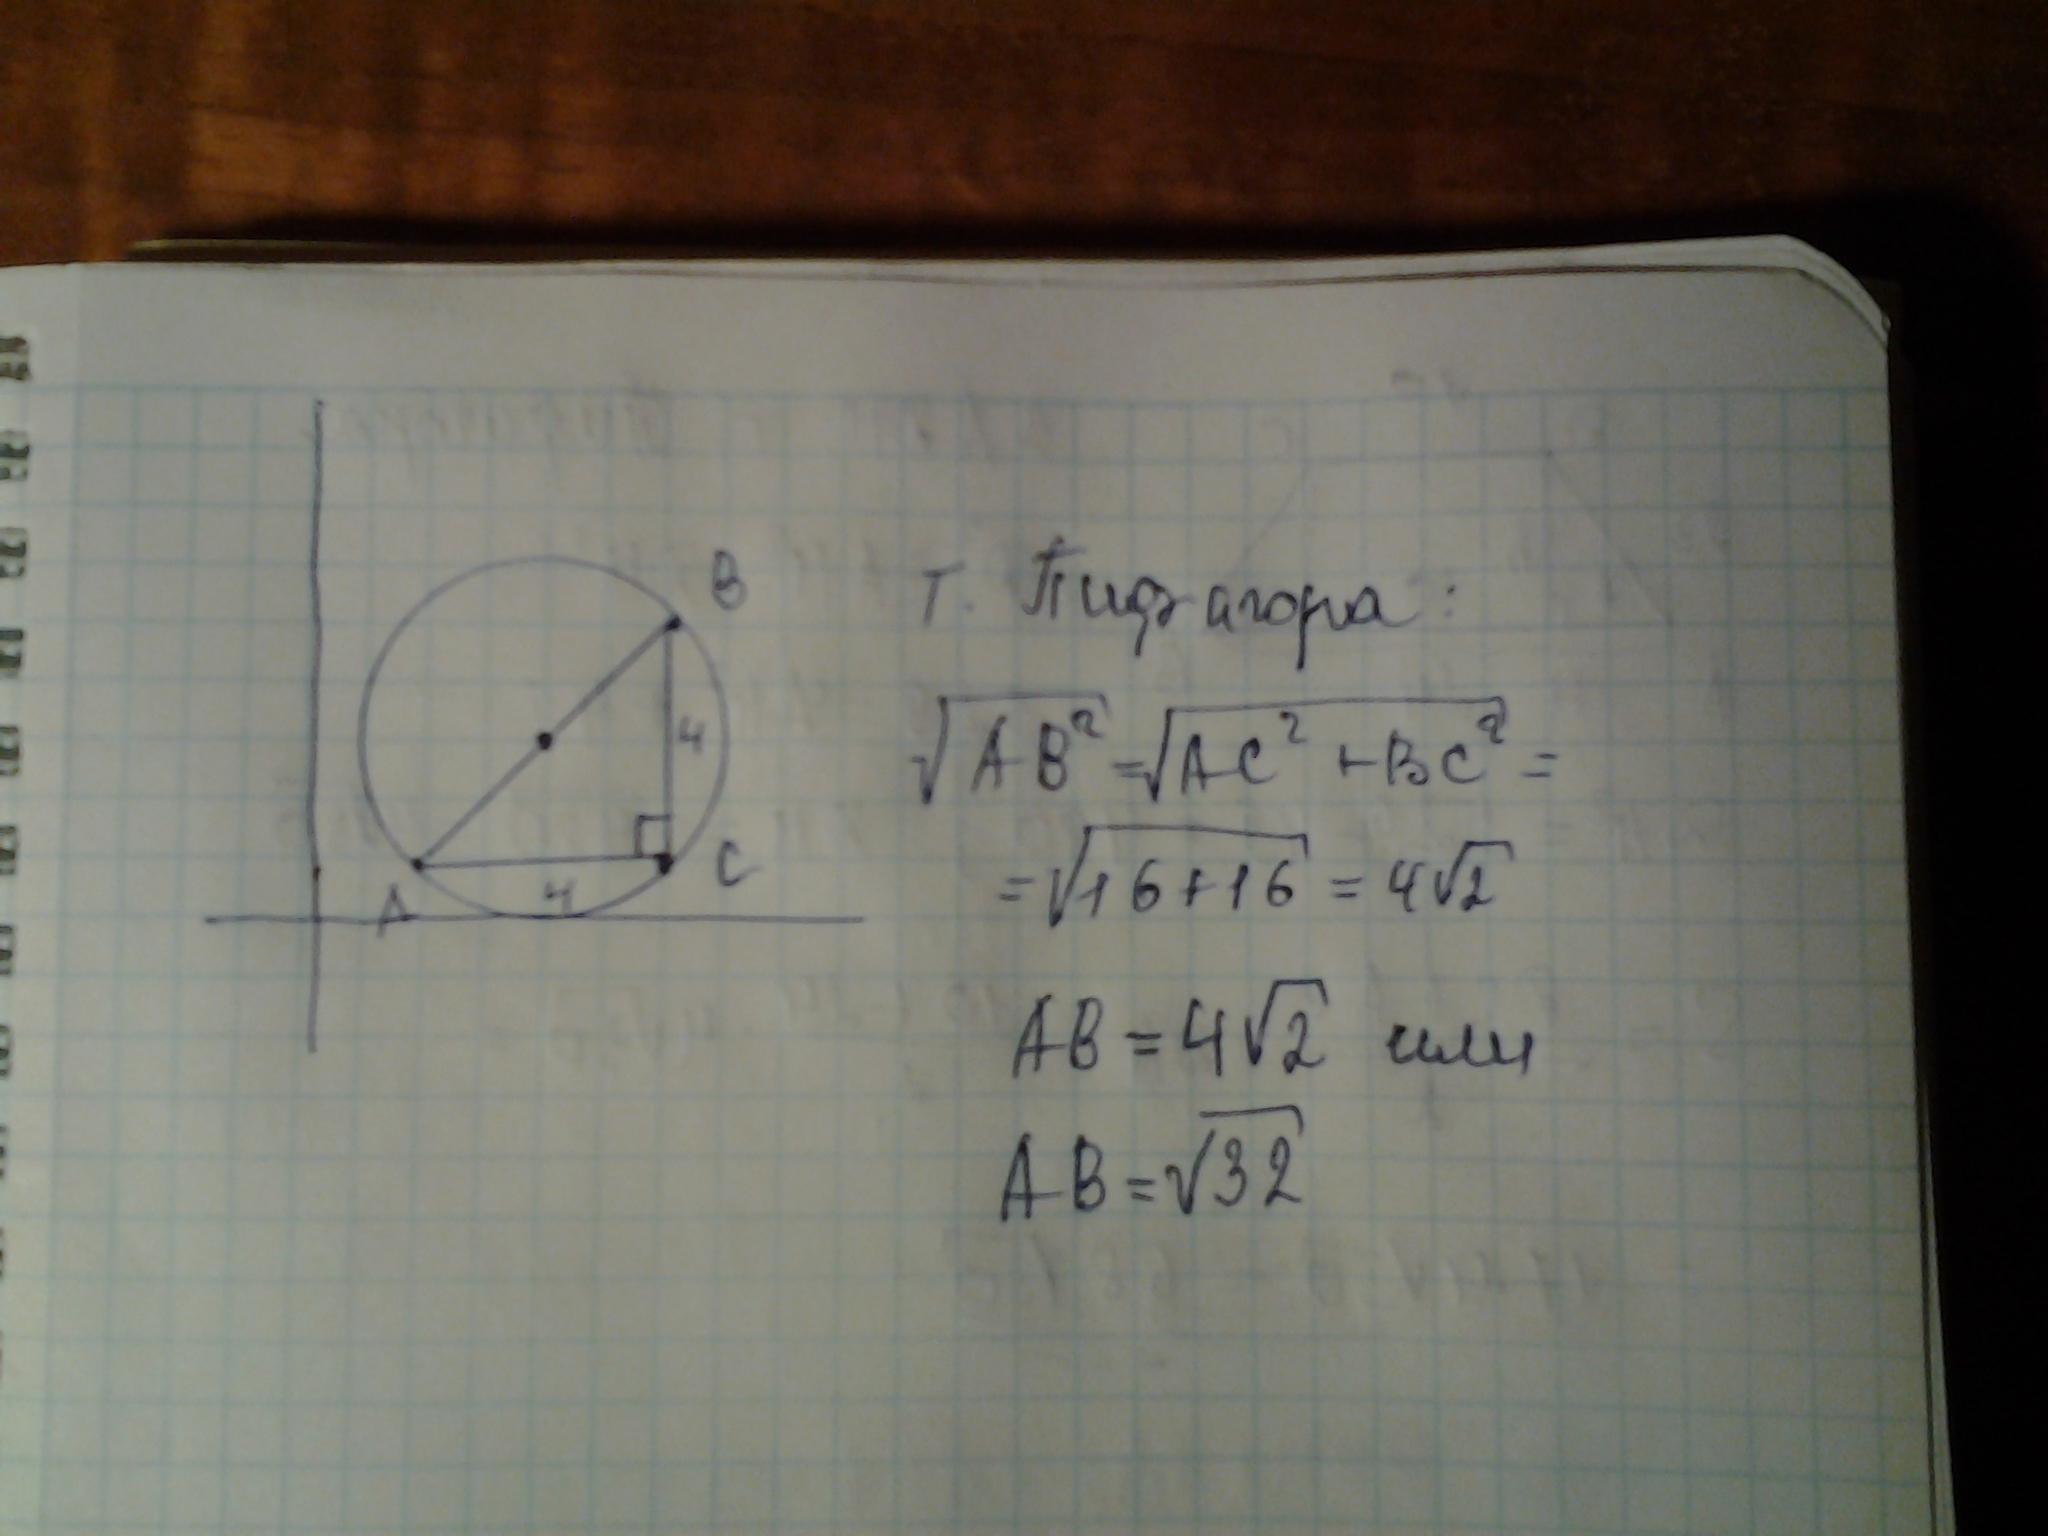 B
4
C
A
4
Т. Пифагора:
√AB² = √AC² + BC² =
= √16+16 = 4√2
AB = 4√2 или
AB = √32